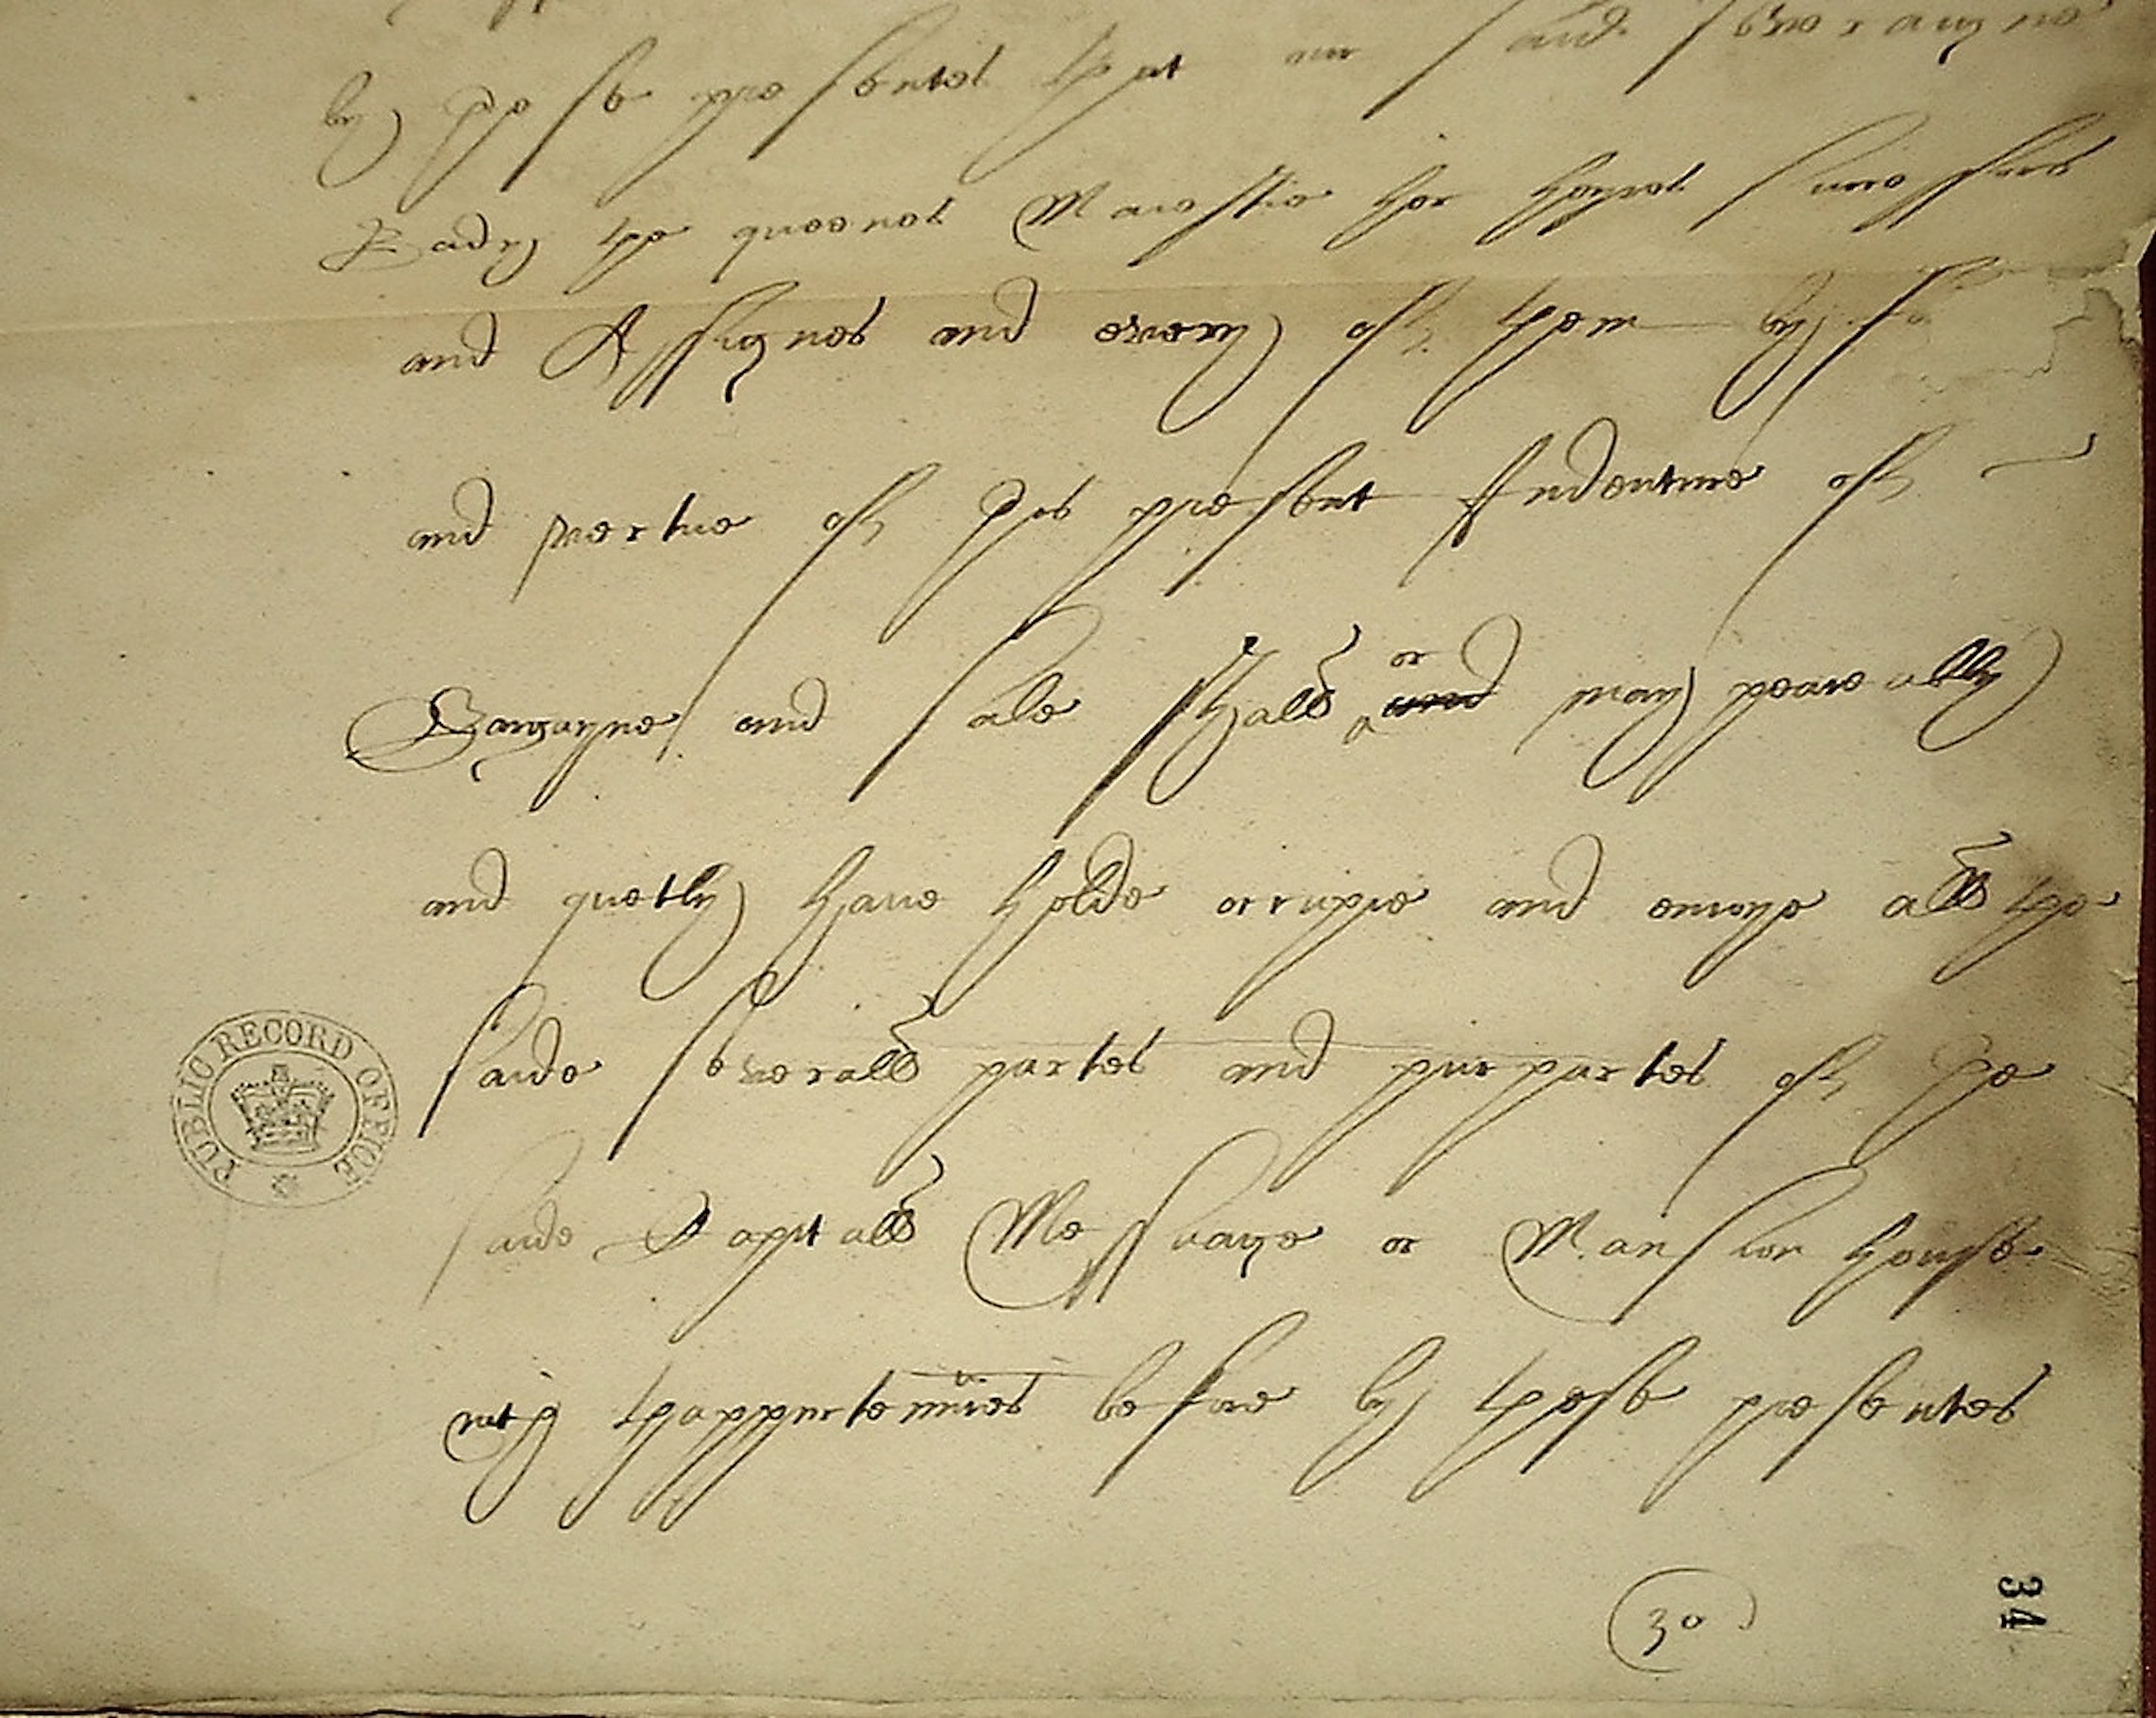 by these presentes that our said Soveraigne
Lady the queenes Maiestie her heyres successors
and Assignes and every of them by
and vertue of this present Indenture of
Bargayne and sale shall or and may peaceably
and quietly have holde occupie and enioye all the
saide severall partes and purpartes of the
saide Capitall Messuage or Mansion house
with thappurtenances before by these presentes
30
34
PUBLIC RECORD OFFICE